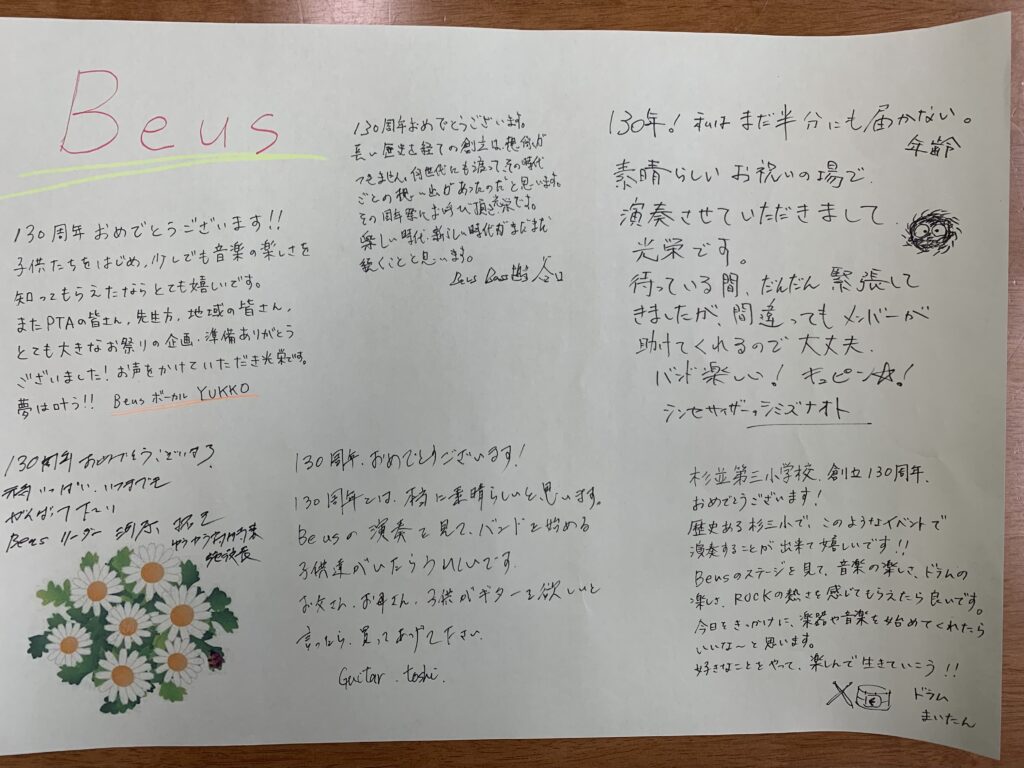 Beus
130周年おめでとうございます!!
子供たちをはじめ,少しでも音楽の楽しさを
知ってもらえたならとても嬉しいです。
またPTAの皆さん,先生方,地域の皆さん,
とても大きなお祭りの企画・準備ありがとう
ございました!お声をかけていただき光栄です。
夢は叶う!! Beusボーカル YUKKO
130周年おめでとうございます。
長い歴史を経ての創立は、想像が
つきません。何世代にも渡って、その時代
ごとの想い出があったのだと思います。
その周年祭にお呼び頂き光栄です。
楽しい時代、新しい時代がまだまだ
続くことと思います。
Beus Bass 谷口
130年!私はまだ半分にも届かない。
年齢
素晴らしいお祝いの場で、
演奏させていただきまして
光栄です。
待っている間、だんだん緊張して
きましたが、間違ってもメンバーが
助けてくれるので大丈夫.
バンド楽しい!キュピーン☆!
シンセサイザー,シミズナオト
130周年おめでとうございます
いっぱい、いつまでも
がんばって下さい
Beus リーダー
130周年、おめでとうございます!
130周年とは、本当に素晴らしいと思います。
Beusの演奏を見て、バンドを始める
子供達がいたらうれしいです。
お父さん、お母さん、子供がギターを欲しいと
言ったら、買ってあげて下さい。
Guitar. toshi.
杉並第三小学校、創立130周年、
おめでとうございます!
歴史ある杉三小で、このようなイベントで
演奏することが出来て嬉しいです!!
Beusのステージを見て、音楽の楽しさ、ドラムの
楽しさ、ROCKの熱さを感じてもらえたら良いです。
今日をきっかけに、楽器や音楽を始めてくれたら
いいな〜と思います。
好きなことをやって、楽しんで生きていこう!!
ドラム
まいたん